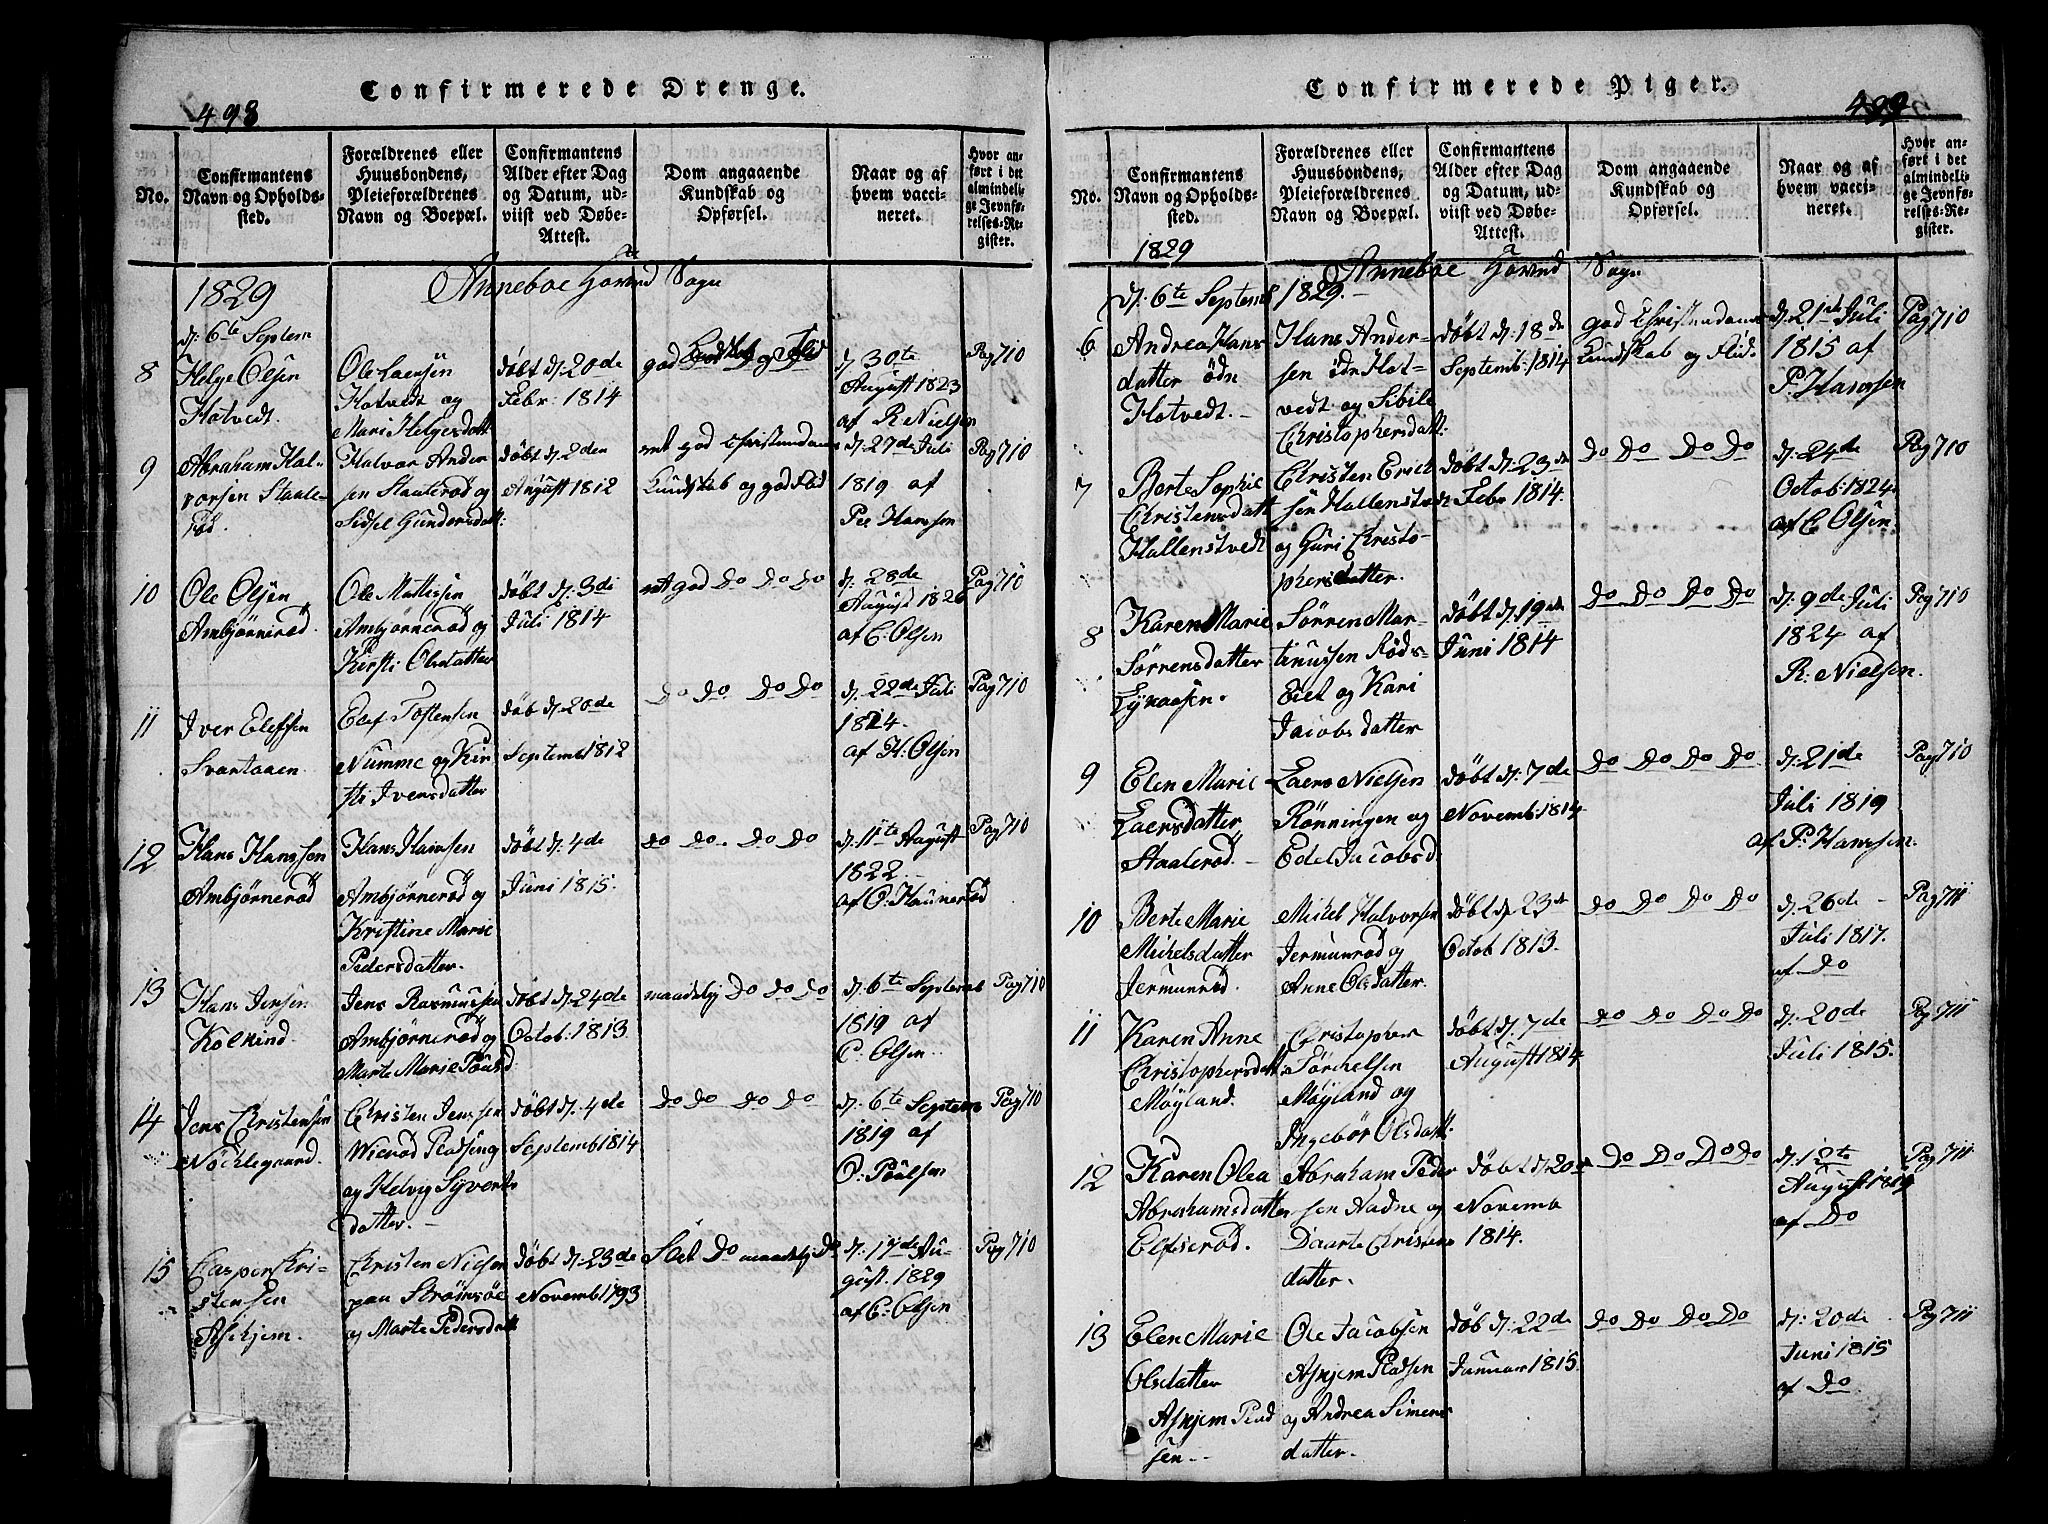 Confirmerede Drenge.
498
No.
Confirmantens
Navn og Opholds-
sted.
Forældrenes eller
Huusbondens,
Pleieforældrenes
Navn og Boepæl.
Confirmantens
Alder efter Dag
og Datum, ud-
viist ved Døbe-
Attest.
Dom angaaende
Kundskab og
Opførsel.
Naar og af
hvem vacci-
neret.
Hvor an-
ført i det
almindeli-
ge Jevnfø-
relses-Re-
gister.
1829
Anneboe Hovud Sogn
d. 6te Septem
8
Helge Olsen
Hotvedt.
Ole Laersen
Hotvedt og
Mari Helgersdatt
døbt d. 20de
Febr. 1814
god Kundskab og Flid
d. 30te
August 1823
af R Nielsen
Pag 710
9
Abraham Hal-
vorsen Staale-
rød.
Halvor Ander
sen Staalerød og
Sidsel Gundersdatt:
døbt d. 2den
August 1812
mt god Christendoms
Kundskab og god Flid
d. 27de Juli
1819 af
Per Hanssen
Pag 710
10
Ole Olsen
Ambjørnerød.
Ole Mattisen
Ambjørnerød og
Kirsti Olsdatter
døbt d. 3di
Juli 1814
mt god Do Do Do
d. 28de
August 1826
af C. Olsen
Pag 710
11
Iver Elefsen
Svartaaen.
Elef Tostensen
Numme og Kir
sti Iversdatter
døb d. 20de
Septemb 1812
Do Do Do Do
d. 22de Juli
1824.
af H. Olsen
Pag 710
12
Hans Hanssen
Ambjørnerød
Hans Hansen
Ambjørnerød og
Kristine Marie
Pedersdatter.
døbt d. 4de
Juni 1815.
Do Do. Do Do
d. 11te August
1822.
af O. Haünerød
Pag 710
13
Hans Jensen
Kolkind.
Jens Rasmussen
Ambjørnerød og
Marte Marie Poülsd
døbt d. 24de
Octob: 1813
maadelig Do Do Do
d. 6te Septemb
1819 af
C. Olsen.
Pag 710
14
Jens Christensen
Nøchlegaard.
Christen Jenssen
Wierød Pladsing
og Helvig Syverts
datter.
døbt d. 4de
Septemb 1814
Do Do Do Do
d. 6te Septem
1819 af
O. Poülsen
Pag 710
15
Casper Kri-
stensen
Askjem.
Christen Nielsen
paa Strømsøe
og Marte Pedersdatt
døbt d. 23de
Novemb 1793
Slet Do maadelig Do
d. 17de Au-
gust. 1829
af C. Olsen
Pag 710
Confirmerede Piger.
499
No.
Confirmantens
Navn og Opholds-
sted.
Forældrenes eller
Huusbondens,
Pleieforældrenes
Navn og Boepæl.
Confirmantens
Alder efter Dag
og Datum, ud-
viist ved Døbe-
Attest.
Dom angaaende
Kundskab og
Opførsel.
Naar og af
hvem vacci-
neret.
Hvor an-
ført i det
almindeli-
ge Jevnfø-
relses-Re-
gister.
1829
Anneboe Hovud Sogn
d. 6te Septemb 1829.
6
Andrea Hans
datter ødn
Hotvedt.
Hans Ander-
sen ødn Hot-
vedt og Sibile
Christophersdatt:
døbt d. 18de
Septemb: 1814
god Christendoms
Kundskab og Flid.
d. 21de Juli
1815 af
P. Hanssen
Pag 710
7
Berte Sophie
Christensdatt
Hallenstvedt
Christen Erich
sen Hallenstvedt
og Guri Christo-
phersdatter.
døbt d. 23de
Febr 1814.
Do Do Do Do
d. 24de
Octob: 1824.
af C. Olsen.
Pag 710
8
Karen Marie
Sørrensdatter
Lynaasen.
Sørren Mar-
tinussen Røds-
Eiet og Kari
Jacobsdatter
døbt d. 19de
Juni 1814
Do Do Do Do
d. 9de Juli
1824 af
R. Nielsen.
Pag 710
9
Elen Marie
Laersdatter
Staalerød.
Laers Nielsen
Rønningen og
Edel Jacobsd.
døbt d. 7de
Novemb: 1814.
Do Do Do Do
d. 21de
Juli 1819
af P. Hanssen.
Pag 710
10
Berte Marie
Michelsdatter
Jermunrød.
Michel Halvorsen
Jermunrød og
Anne Olsdatter.
døbt d. 23de
Octob 1813.
Do Do Do Do
d. 26de
Juli 1817.
af Do
Pag 711
11
Karen Anne
Christophersdatt
Møyland.
Cristopher
Torchelsen
Møyland og
Ingebør Olsdatt.
døbt d. 7de
August 1814
Do Do Do Do
d. 20de
Juli 1815.
Pag 711
12
Karen Olea
Abrahamsdatter
Elfserød.
Abraham Peder
sen Nadne og
Daarte Christens
datter.
døbt d. 20de
Novemb
1814.
Do Do Do Do
d. 12te
August 1819
af Do
Pag 711
13
Elen Marie
Olsdatter
Askjem Plad
sen.
Ole Jacobsen
Askjem Pladsen
og Andrea Simens
datter.
døb d. 22de
Januar 1815.
Do Do Do Do
d. 20de
Juni 1815
af Do.
Pag 711